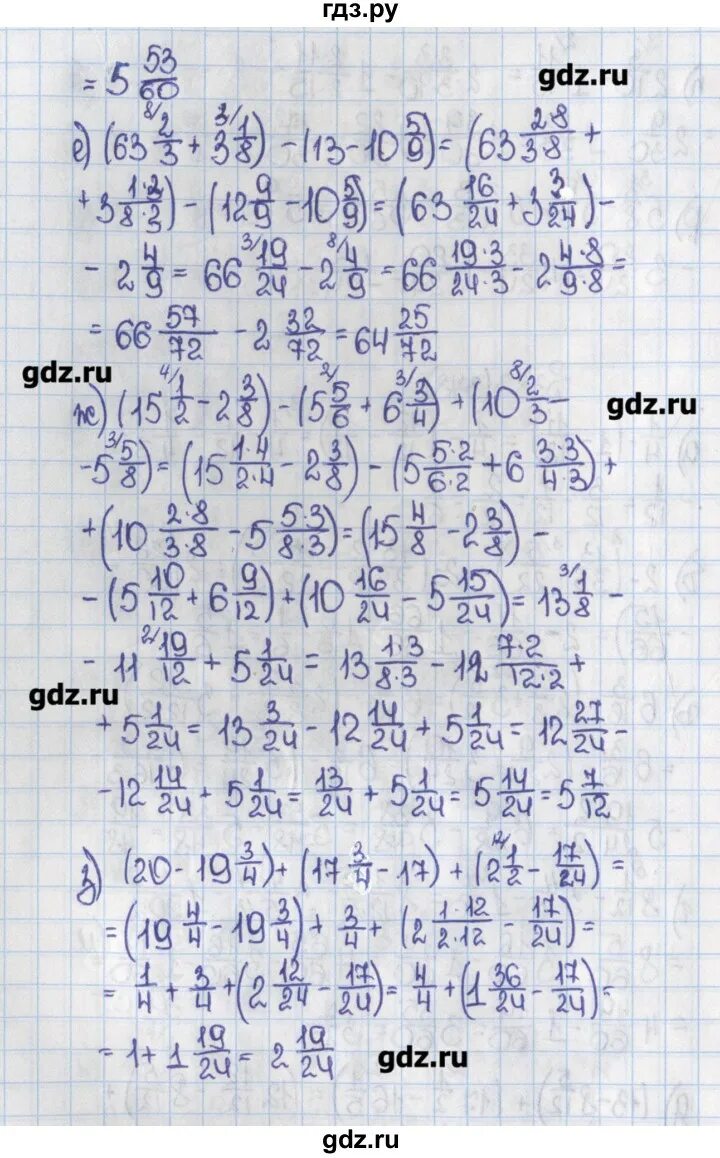 гдз.ру
= 5 53/60
gdz.ru
е) (63 8/ 2/3 + 3 3/ 1/8) - (13 - 10 5/9) = (63 2·8/3·8 +
+ 3 1·3/8·3) - (12 9/9 - 10 5/9) = (63 16/24 + 3 3/24) -
- 2 4/9 = 66 3/ 19/24 - 2 8/ 4/9 = 66 19·3/24·3 - 2 4·8/9·8 =
= 66 57/72 - 2 32/72 = 64 25/72
gdz.ru
ж) (15 4/ 1/2 - 2 3/8) - (5 2/ 5/6 + 6 3/ 3/4) + (10 8/ 2/3 -
gdz.ru
- 5 3/ 5/8) = (15 1·4/2·4 - 2 3/8) - (5 5·2/6·2 + 6 3·3/4·3) +
+ (10 2·8/3·8 - 5 5·3/8·3) = (15 4/8 - 2 3/8) -
- (5 10/12 + 6 9/12) + (10 16/24 - 5 15/24) = 13 3/ 1/8 -
- 11 2/ 19/12 + 5 1/24 = 13 1·3/8·3 - 12 7·2/12·2 +
gdz.ru
+ 5 1/24 = 13 3/24 - 12 14/24 + 5 1/24 = 12 27/24 -
- 12 14/24 + 5 1/24 = 13/24 + 5 1/24 = 5 14/24 = 5 7/12
з) (20 - 19 3/4) + (17 3/4 - 17) + (2 12/ 1/2 - 17/24) =
= (19 4/4 - 19 3/4) + 3/4 + (2 1·12/2·12 - 17/24) =
= 1/4 + 3/4 + (2 12/24 - 17/24) = 4/4 + (1 36/24 - 17/24) =
= 1 + 1 19/24 = 2 19/24
gdz.ru
gdz.ru